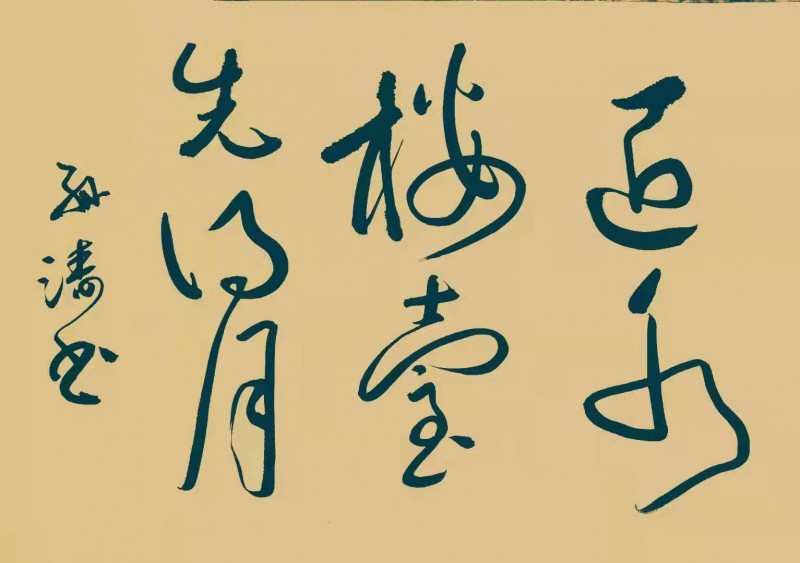 近水
楼臺
先得月
孙涛书